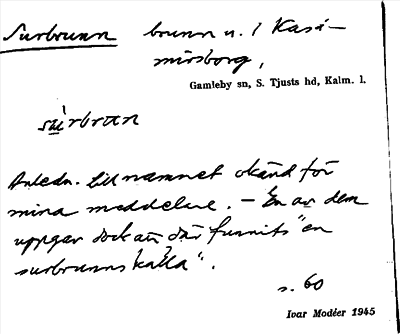 Surbrunn brunn u. 1 Kasi-
mirsborg,
Gamleby sn, S. Tjusts hd, Kalm. l.
sùrbran
Anledn. till namnet okänd för
mina meddelare. – En av dem
uppgav dock att där funnits "en
surbrunnskälla".
s. 60
Ivar Modéer 1945